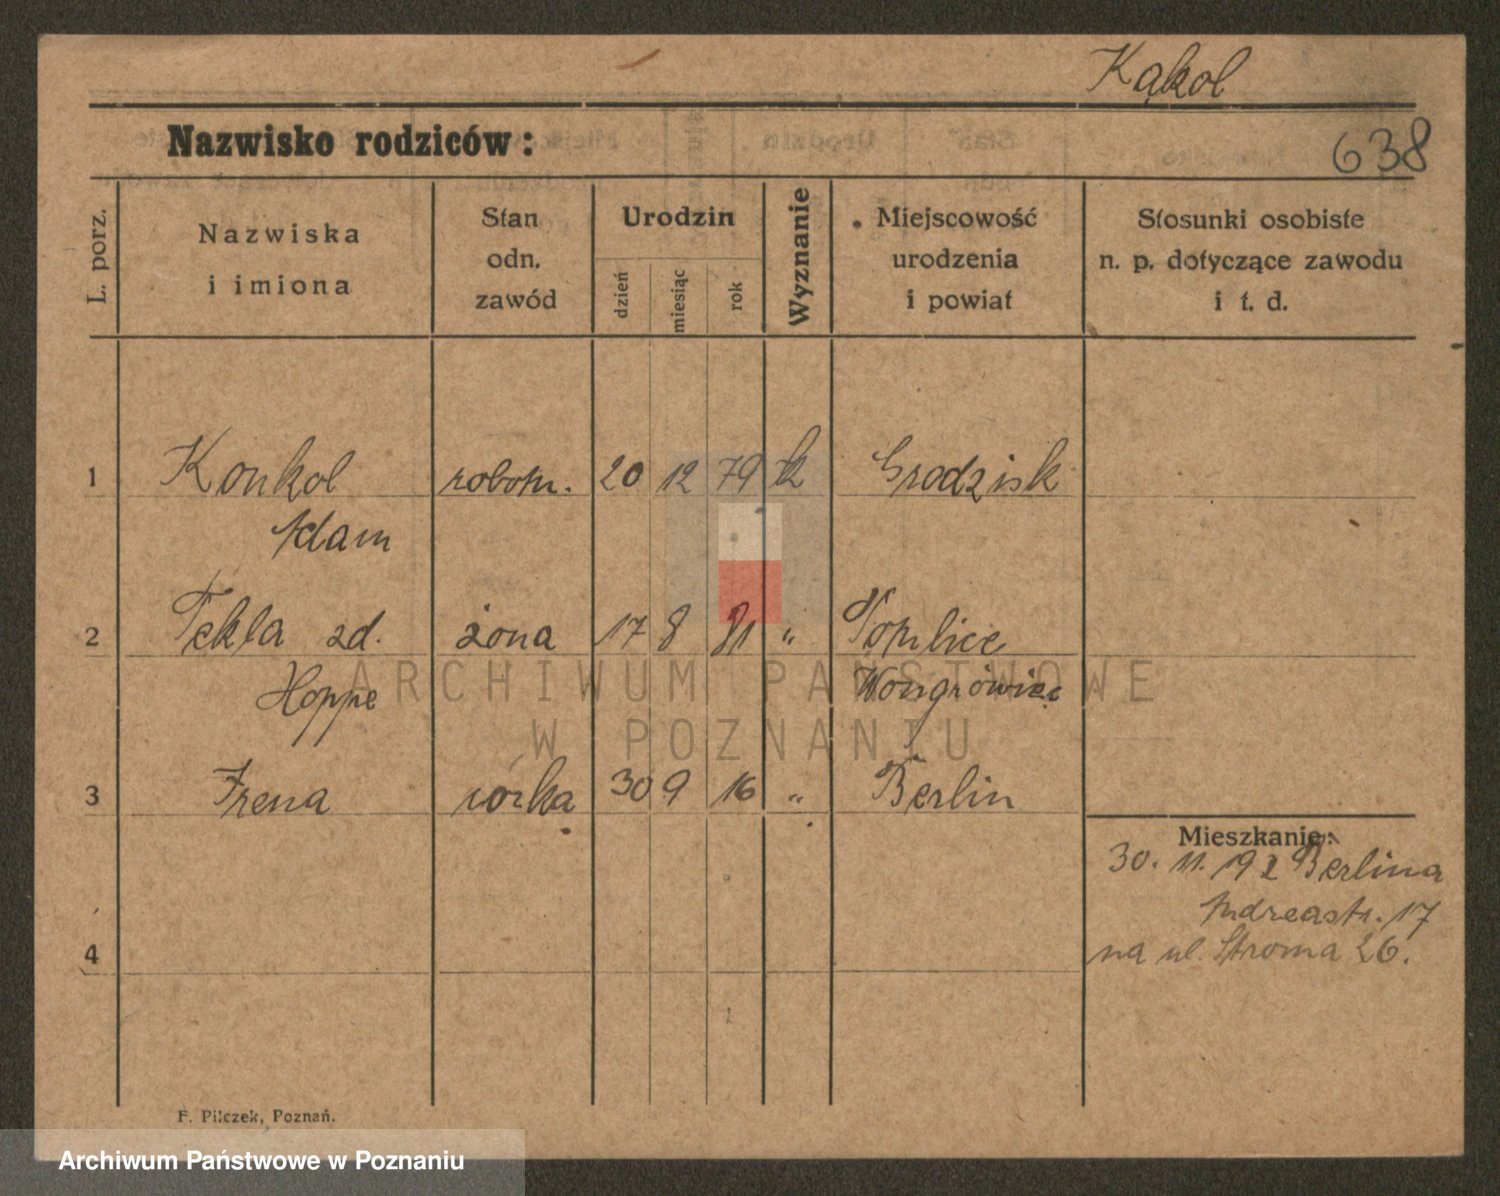 Kąkol
Nazwisko rodziców:
638
L. porz.
Nazwiska
i imiona
Stan
odn.
zawód
Urodzin
dzień
miesiąc
rok
Wyznanie
Miejscowość
urodzenia
i powiat
Stosunki osobiste
n. p. dotyczące zawodu
i t. d.
1 Konkol robotn. 20 12 79 k Grodzisk
Adam
2 Tekla zd. żona 17 8 81 " 
Hoppe Wongrówiec
3 Irena córka 30 9 16 " Berlin
Mieszkanie:
30. 11. 19 z Berlina
Andreastr. 17
na ul. Stroma 26.
4
F. Pilczek, Poznań.
ARCHIWUM PAŃSTWOWE
W POZNANIU
Archiwum Państwowe w Poznaniu